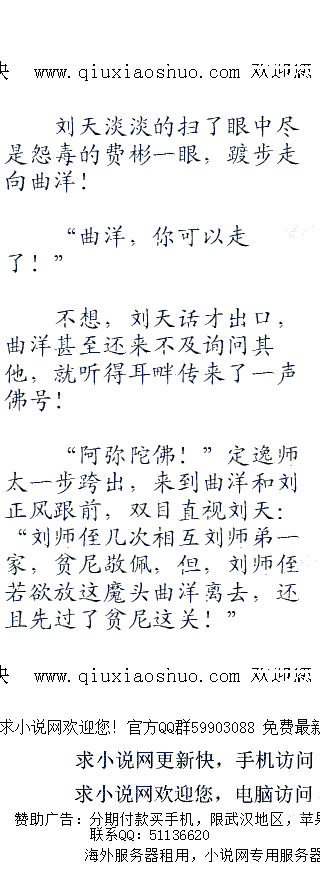 快 www.qiuxiaoshuo.com 欢迎您
刘天淡淡的扫了眼中尽
是怨毒的费彬一眼，踱步走
向曲洋！
“曲洋，你可以走
了！”
不想，刘天话才出口，
曲洋甚至还来不及询问其
他，就听得耳畔传来了一声
佛号！
“阿弥陀佛！”定逸师
太一步跨出，来到曲洋和刘
正风跟前，双目直视刘天：
“刘师侄几次相互刘师弟一
家，贫尼敬佩，但，刘师侄
若欲放这魔头曲洋离去，还
且先过了贫尼这关！”
快 www.qiuxiaoshuo.com 欢迎您
求小说网欢迎您！官方QQ群59903088 免费最新
求小说网更新快，手机访问
求小说网欢迎您，电脑访问
赞助广告：分期付款买手机，限武汉地区，苹果
联系QQ：51136620
海外服务器租用，小说网专用服务器